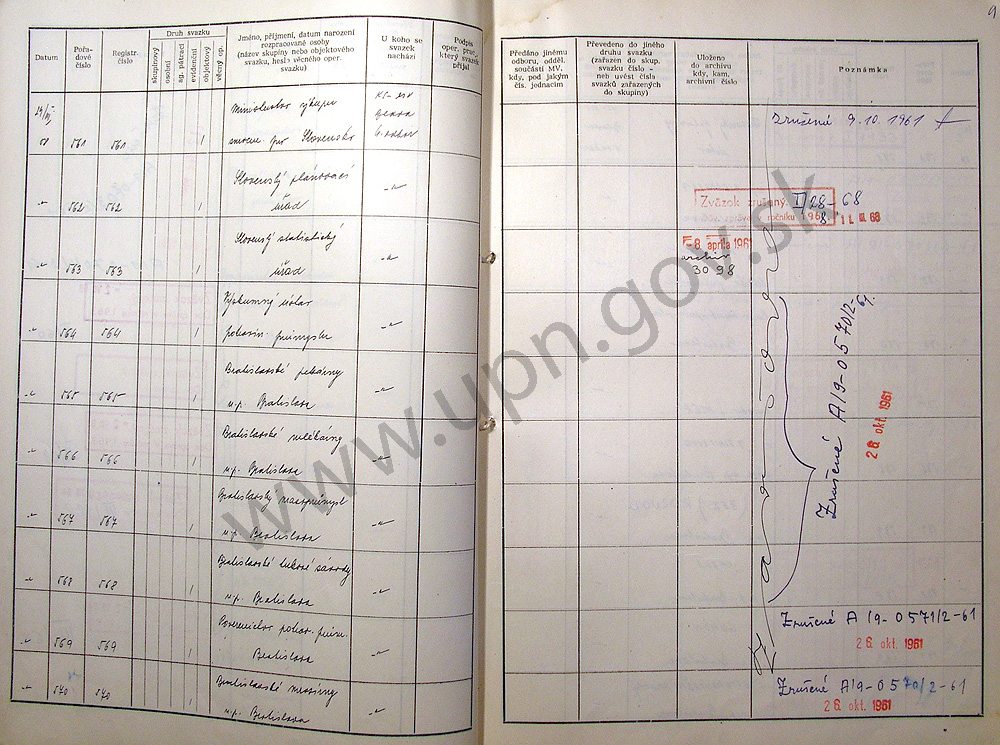 9
Datum
Pořa-
dové
číslo
Registr.
číslo
Druh svazku
skupinový
osobní
ag. pátrací
evidenční
objektový
věcný op.
Jméno, příjmení, datum narození
rozpracované osoby
(název skupiny nebo objektového
svazku, heslo věcného oper.
svazku)
U koho se
svazek
nachází
Podpis
oper. prac.,
který svazek
přijal
Předáno jinému
odboru, odděl.
součásti MV.
kdy, pod jakým
čís. jednacím
Převedeno do jiného
druhu svazku
(zařazen do skup.
svazku číslo -
neb uvést čísla
svazků zařazených
do skupiny)
Uloženo
do archivu
kdy, kam,
archivní číslo
Poznámka
561 561 1
Slovensko
Zrušené 9.10.1961
562 562 1
Slovenský plánovací
úřad
Zväzok zrušený I/28-68
ročníku 1968
563 563 1
Slovenský statistický
úřad
8. apríla 1961
archiv
3098
564 564 1
Výzkumný ústav
potravin. průmyslu
565 565 1
Bratislavské pekárny
n.p. Bratislava
566 566 1
Bratislavské mlékárny
n.p. Bratislava
567 567 1
Bratislavský masoprůmysl
n.p. Bratislava
568 568 1
Bratislavské tukové závody
n.p. Bratislava
Zrušené A/9-0570/2-61.
26. okt. 1961
569 569 1
Bratislava
Zrušené A/9-0571/2-61
26. okt. 1961
570 570 1
Bratislavské
n.p. Bratislava
Zrušené A/9-0570/2-61
26. okt. 1961
www.upn.gov.sk